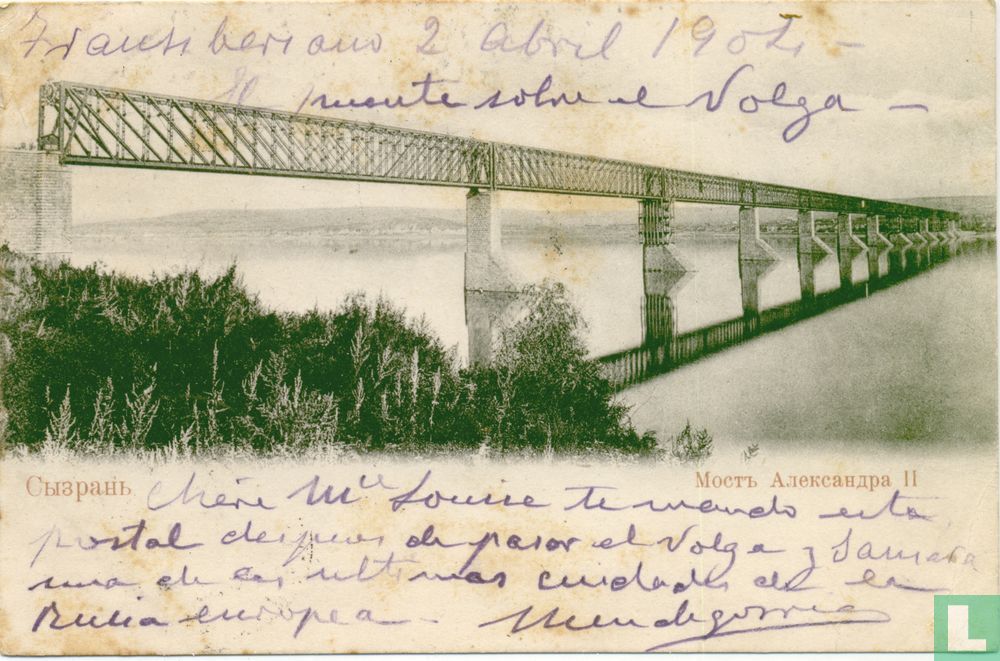 Transiberiano 2 Abril 1904 —
El puente sobre el Volga —
Сызрань
Мостъ Александра II
Chère Mlle Louise te mando esta
postal despues de pasar el Volga y Samara
una de las ultimas ciudades de la
Rusia europea —
Mendigorria
L